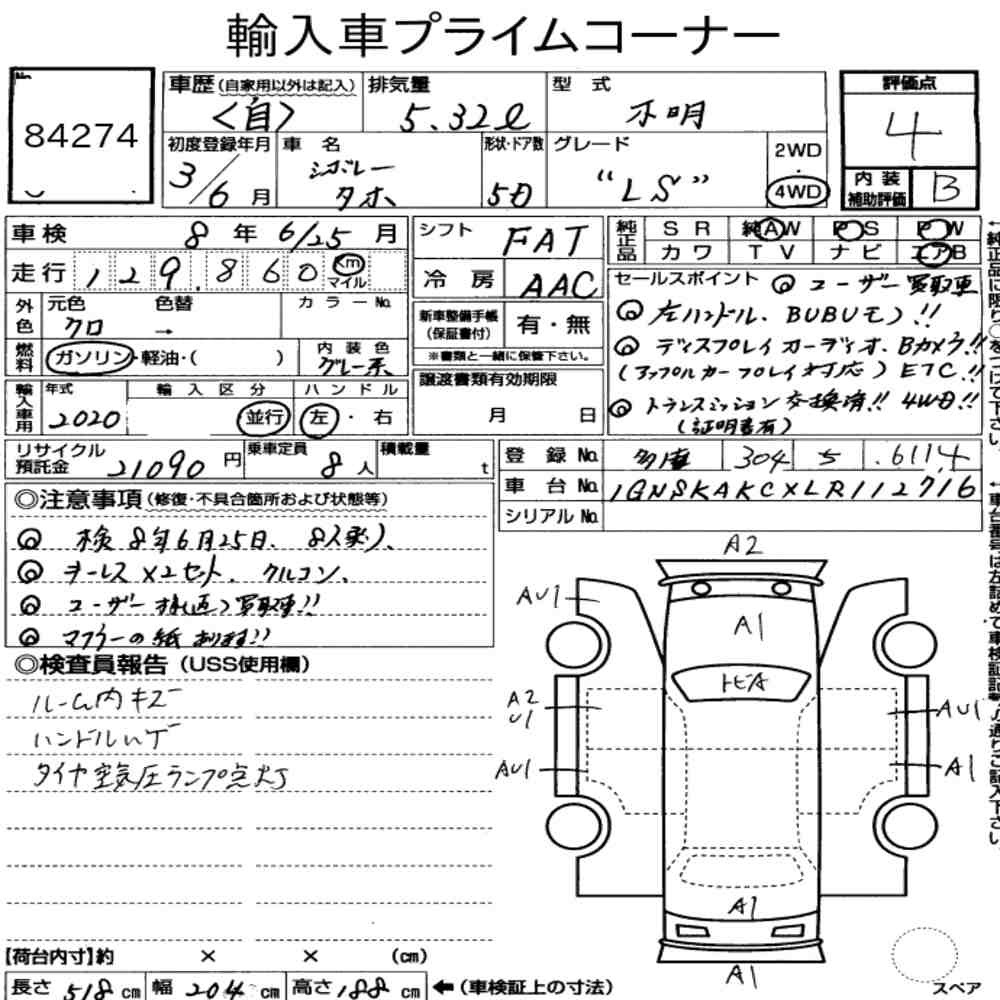 輸入車プライムコーナー
No.
84274
車歴(自家用以外は記入) 排気量 型式 評価点
<自> 5.32ℓ 不明 4
初度登録年月 車名 形状・ドア数 グレード 2WD ・ 4WD
3/6月 シボレー タホ 5D "LS"
内装補助評価 B
車検 8年6/25月
走行 129,860 Km マイル
外色 元色 色替 カラーNo.
クロ →
燃料 ガソリン・軽油・( ) 内装色 グレー系
輸入車用 年式 輸入区分 ハンドル
2020 並行 左・右
リサイクル預託金 21090円 乗車定員 8人 積載量 t
シフト FAT
冷房 AAC
新車整備手帳(保証書付) 有・無
※書類と一緒に保管下さい。
譲渡書類有効期限
月 日
純正品 SR 純AW PS PW
カワ TV ナビ エアB
セールスポイント ◎ユーザー買取車
◎左ハンドル、BUBUモノ!!
◎ディスプレイオーディオ、Bカメラ!!
(アップルカープレイ対応) ETC!!
◎トランスミッション交換済!! 4WD!!
(証明書有)
登録No. 多摩 304 ち .6114
車台No. 1GNSKAKCXLR112716
シリアルNo.
◎注意事項(修復・不具合箇所および状態等)
◎ 検8年6月25日、8人乗り、
◎ キーレス×2セット、クルコン、
◎ ユーザー様(直)買取車!!
◎ マフラーの紙あります!!
◎検査員報告(USS使用欄)
ルーム内キズ
ハンドルハゲ
タイヤ空気圧ランプ点灯
A2
AU1
A1
トビA
A2 U1
AU1
AU1
A1
A1
A1
スペア
【荷台内寸】約 × × (cm)
長さ 518cm 幅 204cm 高さ 188cm ←(車検証上の寸法)